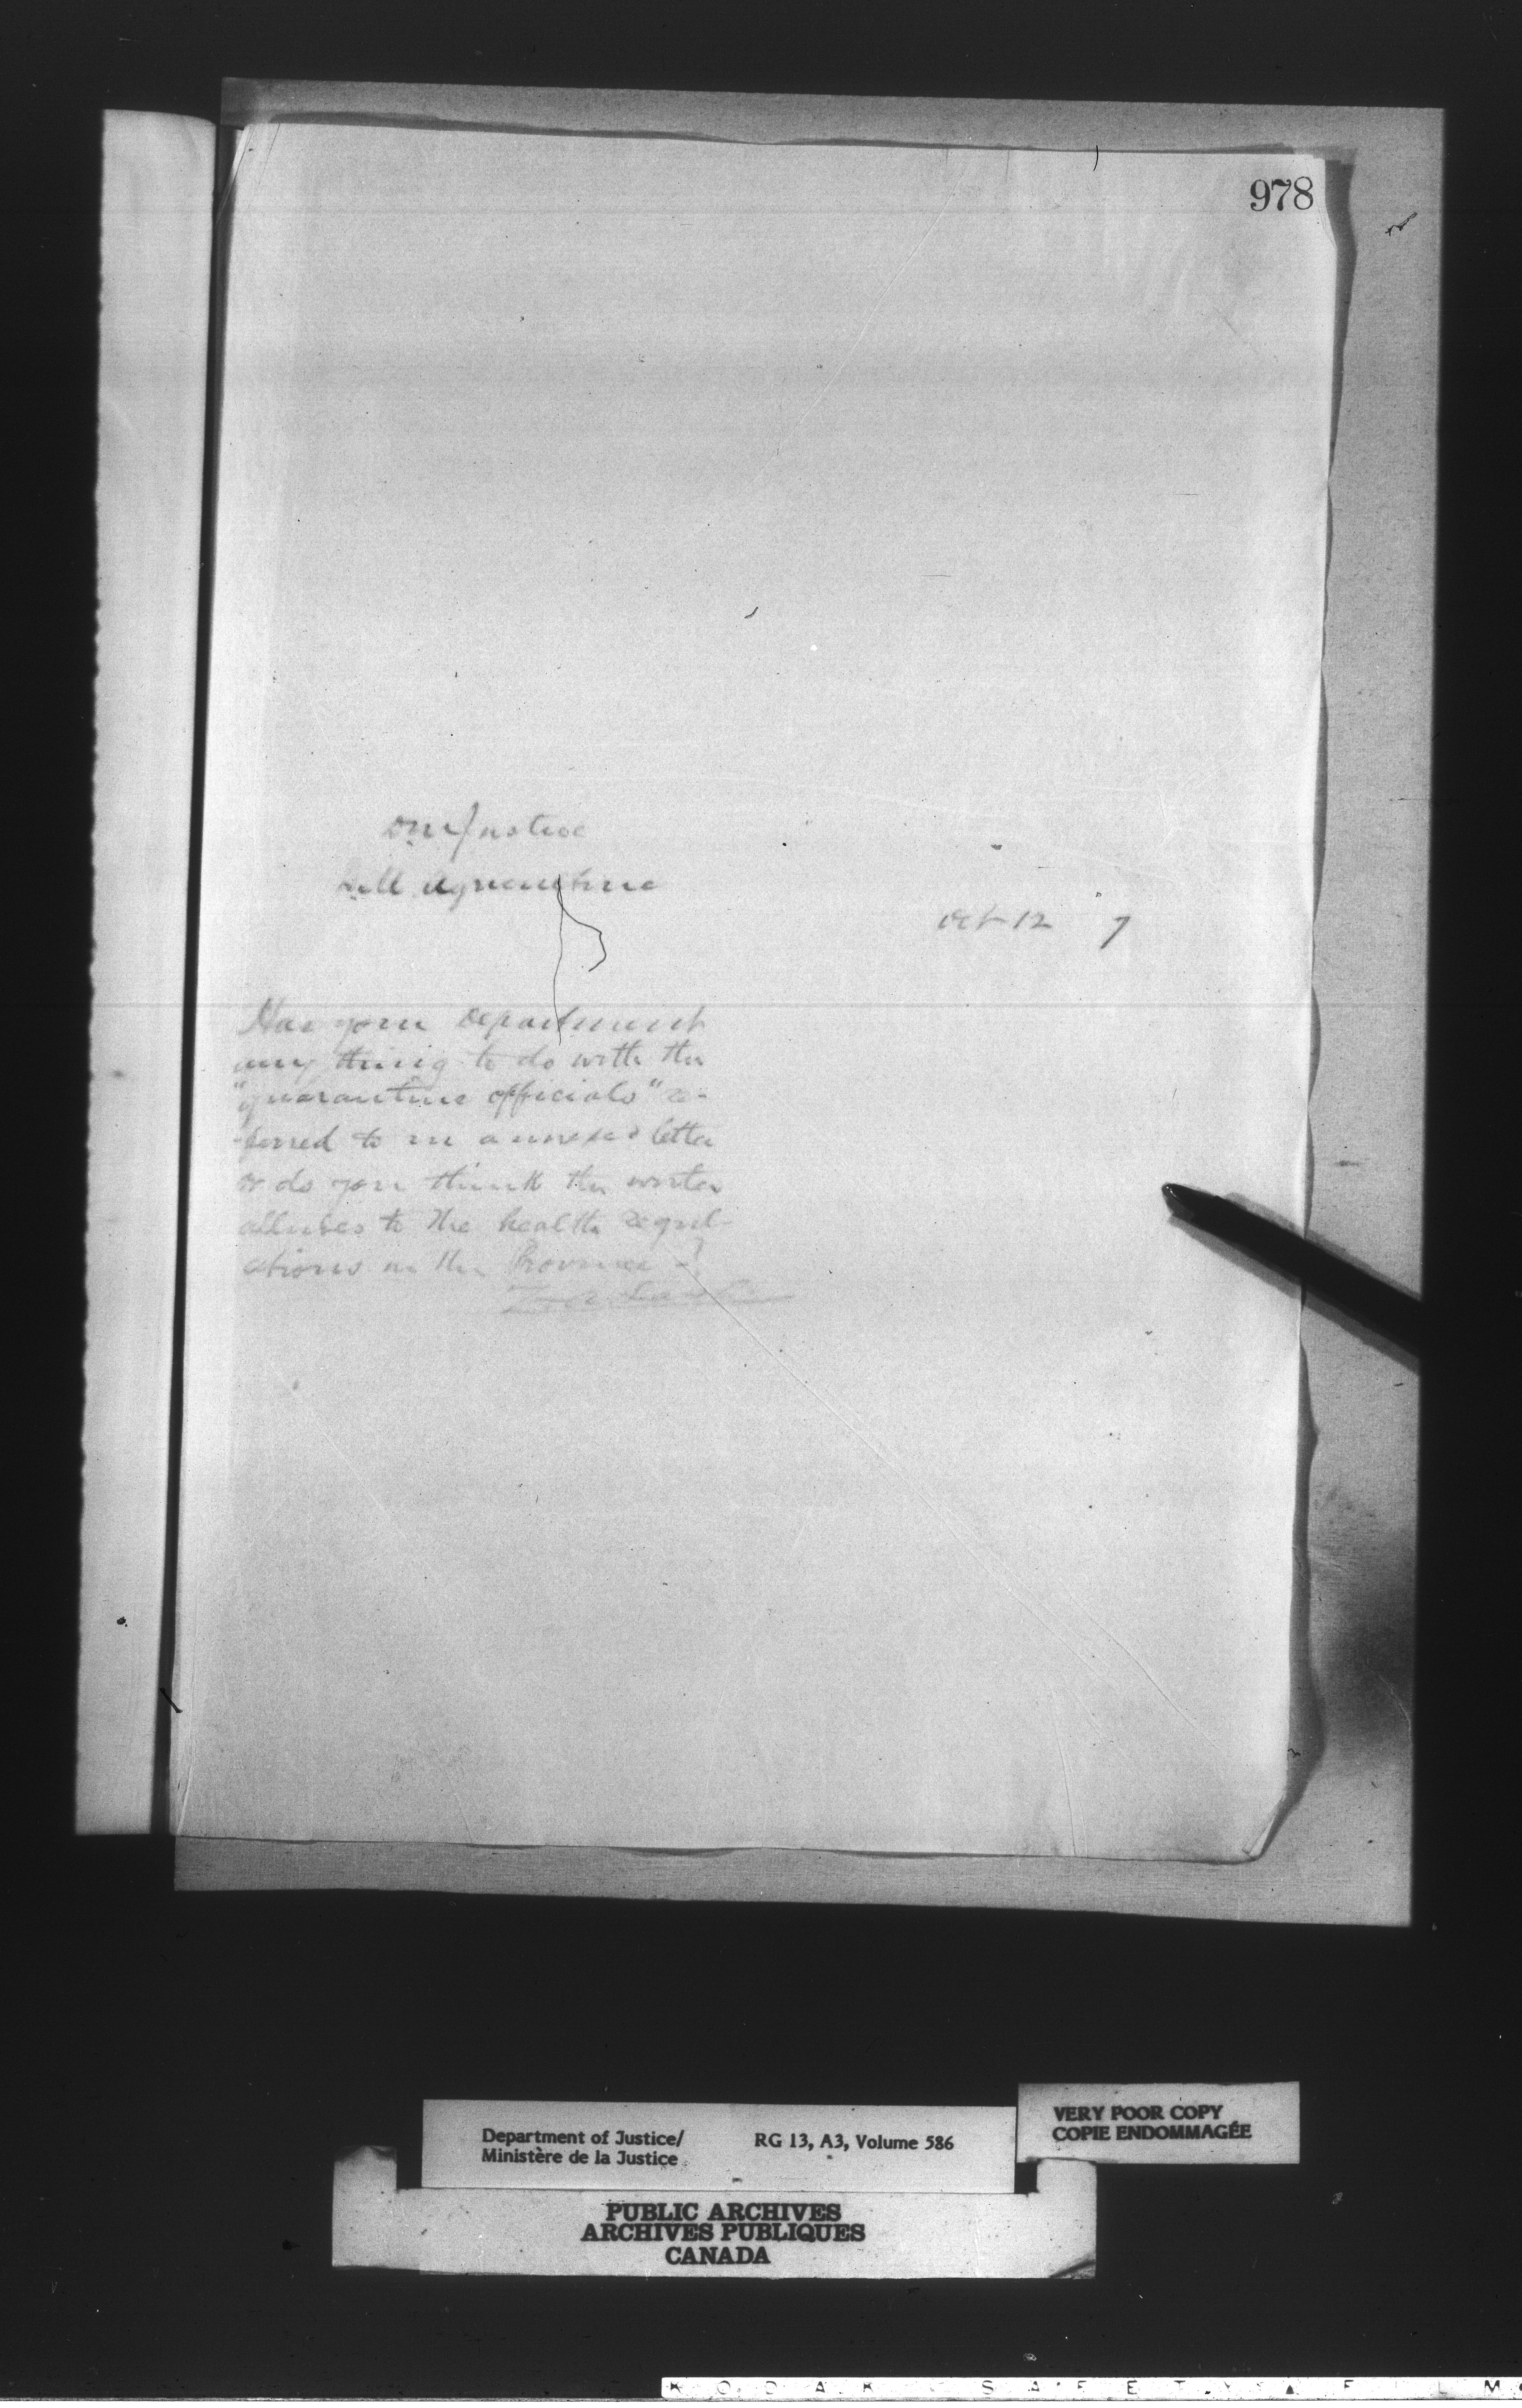 978
DM Justice
DM Agriculture
Oct 12 7
Has your Department
any thing to do with the
"quarantine officials" re-
-ferred to in annexed letter
or do you think the writer
alludes to the health regul-
ations in the Province -?
Department of Justice/
Ministère de la Justice
RG 13, A3, Volume 586
VERY POOR COPY
COPIE ENDOMMAGÉE
PUBLIC ARCHIVES
ARCHIVES PUBLIQUES
CANADA
KODAK SAFETY FILM